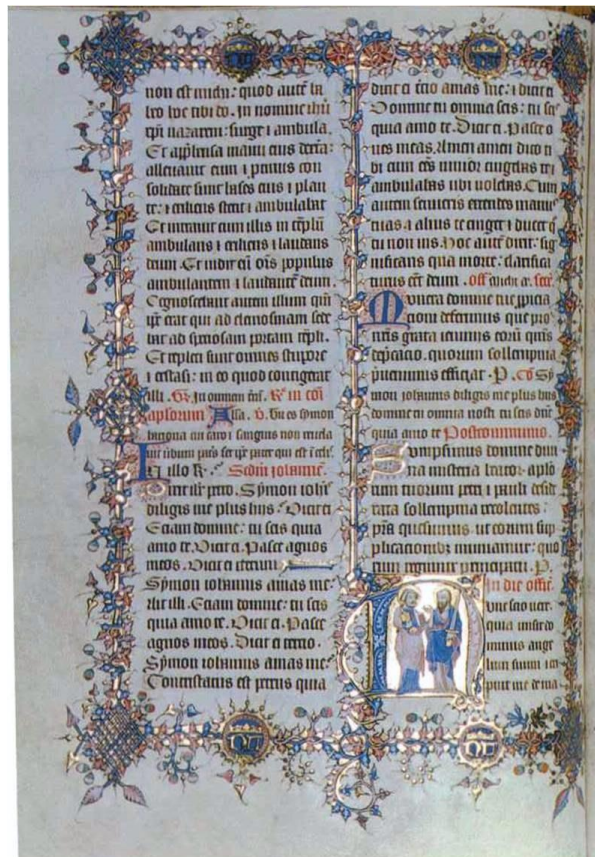 non est michi: quod autē ha
beo hoc tibi do. In nomine ihū
xp̄i nazareni: surge et ambula.
Et apprehensa manu eius dextra:
alleuauit eum et protinus con
solidate sunt bases eius et plan
te: et exiliens stetit et ambulabat
Et intrauit cum illis in tēplū
ambulans et exiliens et laudans
deum. Et uidit eū oīs populus
ambulantem et laudantē deum.
Cognoscebant autem illum qm̄
ip̄e erat qui ad elemosinam sede
bat ad speciosam portam tēpli.
Et repleti sunt omnes stupore
et extasi: in eo quod contigerat
illi. Gr̄. In omnem t̄rā.
aplorum Alla. v. Tu es symon
bariona quia caro et sanguis non reuela
uit uerbum patris set ip̄e pater qui est ī celis
In illo t̄. Sedm̄ iohannē.
Dixit ih̄c petro. Symon ioh̄is
diligis me plus hijs. Dicit ei
Eciam domine: tu scis quia
amo te. Dicit ei. Pasce agnos
meos. Dicit ei iterum
Symon iohannis amas me:
Ait illi. Eciam domine: tu scis
quia amo te. Dicit ei. Pasce
agnos meos. Dicit ei tercio.
Symon iohannis amas me:
Contristatus est petrus quia
dixit ei t̄cio amas me: et dicit ei
Domine tu omnia scis: tu scis
quia amo te. Dicit ei. Pasce o
ues meas. Amen amen dico ti
bi cum ēēs iunior cingebas te et
ambulabas ubi uolebas. Cum
autem senueris extendes manus
tuas et alius te cinget et ducet q̄
tu non uis. Hoc autē dixit: sig
nificans qua morte: clarifica
turus ēēt deum. off̄ secr̄
Munera domine tue plebis
que pro
grata ieiunijs eorū quis
dep̄cacio. quorum sollempnia
p̄uenimus efficiat. P. cō Sy
mon iohannis diligis me plus hijs
domine tu omnia nosti tu scis dn̄e
quia amo te Postcommunio.
Sumpsimus domine diui
na misteria beator̄ aplo
rum tuorum petri et pauli desid
erata sollempnia recolentes.
pr̄a quesumus. ut eorum sup
plicacionibz muniamur: quo
rum regimur principatu. P.
In die offic̄.
Nunc scio uere
quia misit do
minus ange
lum suum et eri
puit me de ma